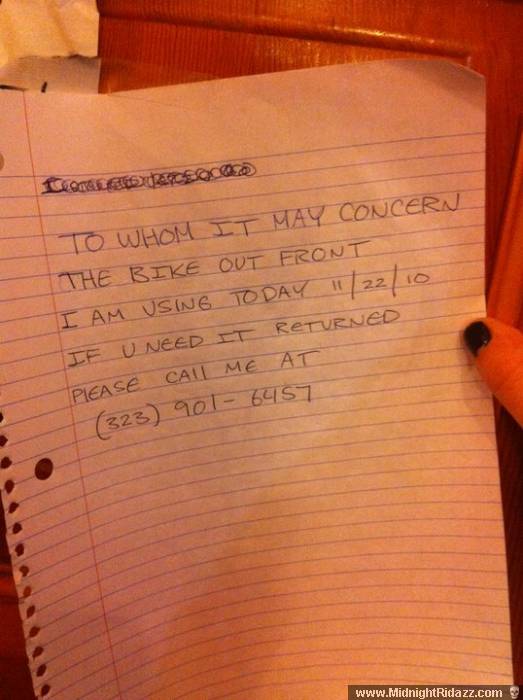 TO WHOM IT MAY CONCERN
THE BIKE OUT FRONT
I AM USING TODAY 11/22/10
IF U NEED IT RETURNED
PLEASE CALL ME AT
(323) 901-6457
www.MidnightRidazz.com